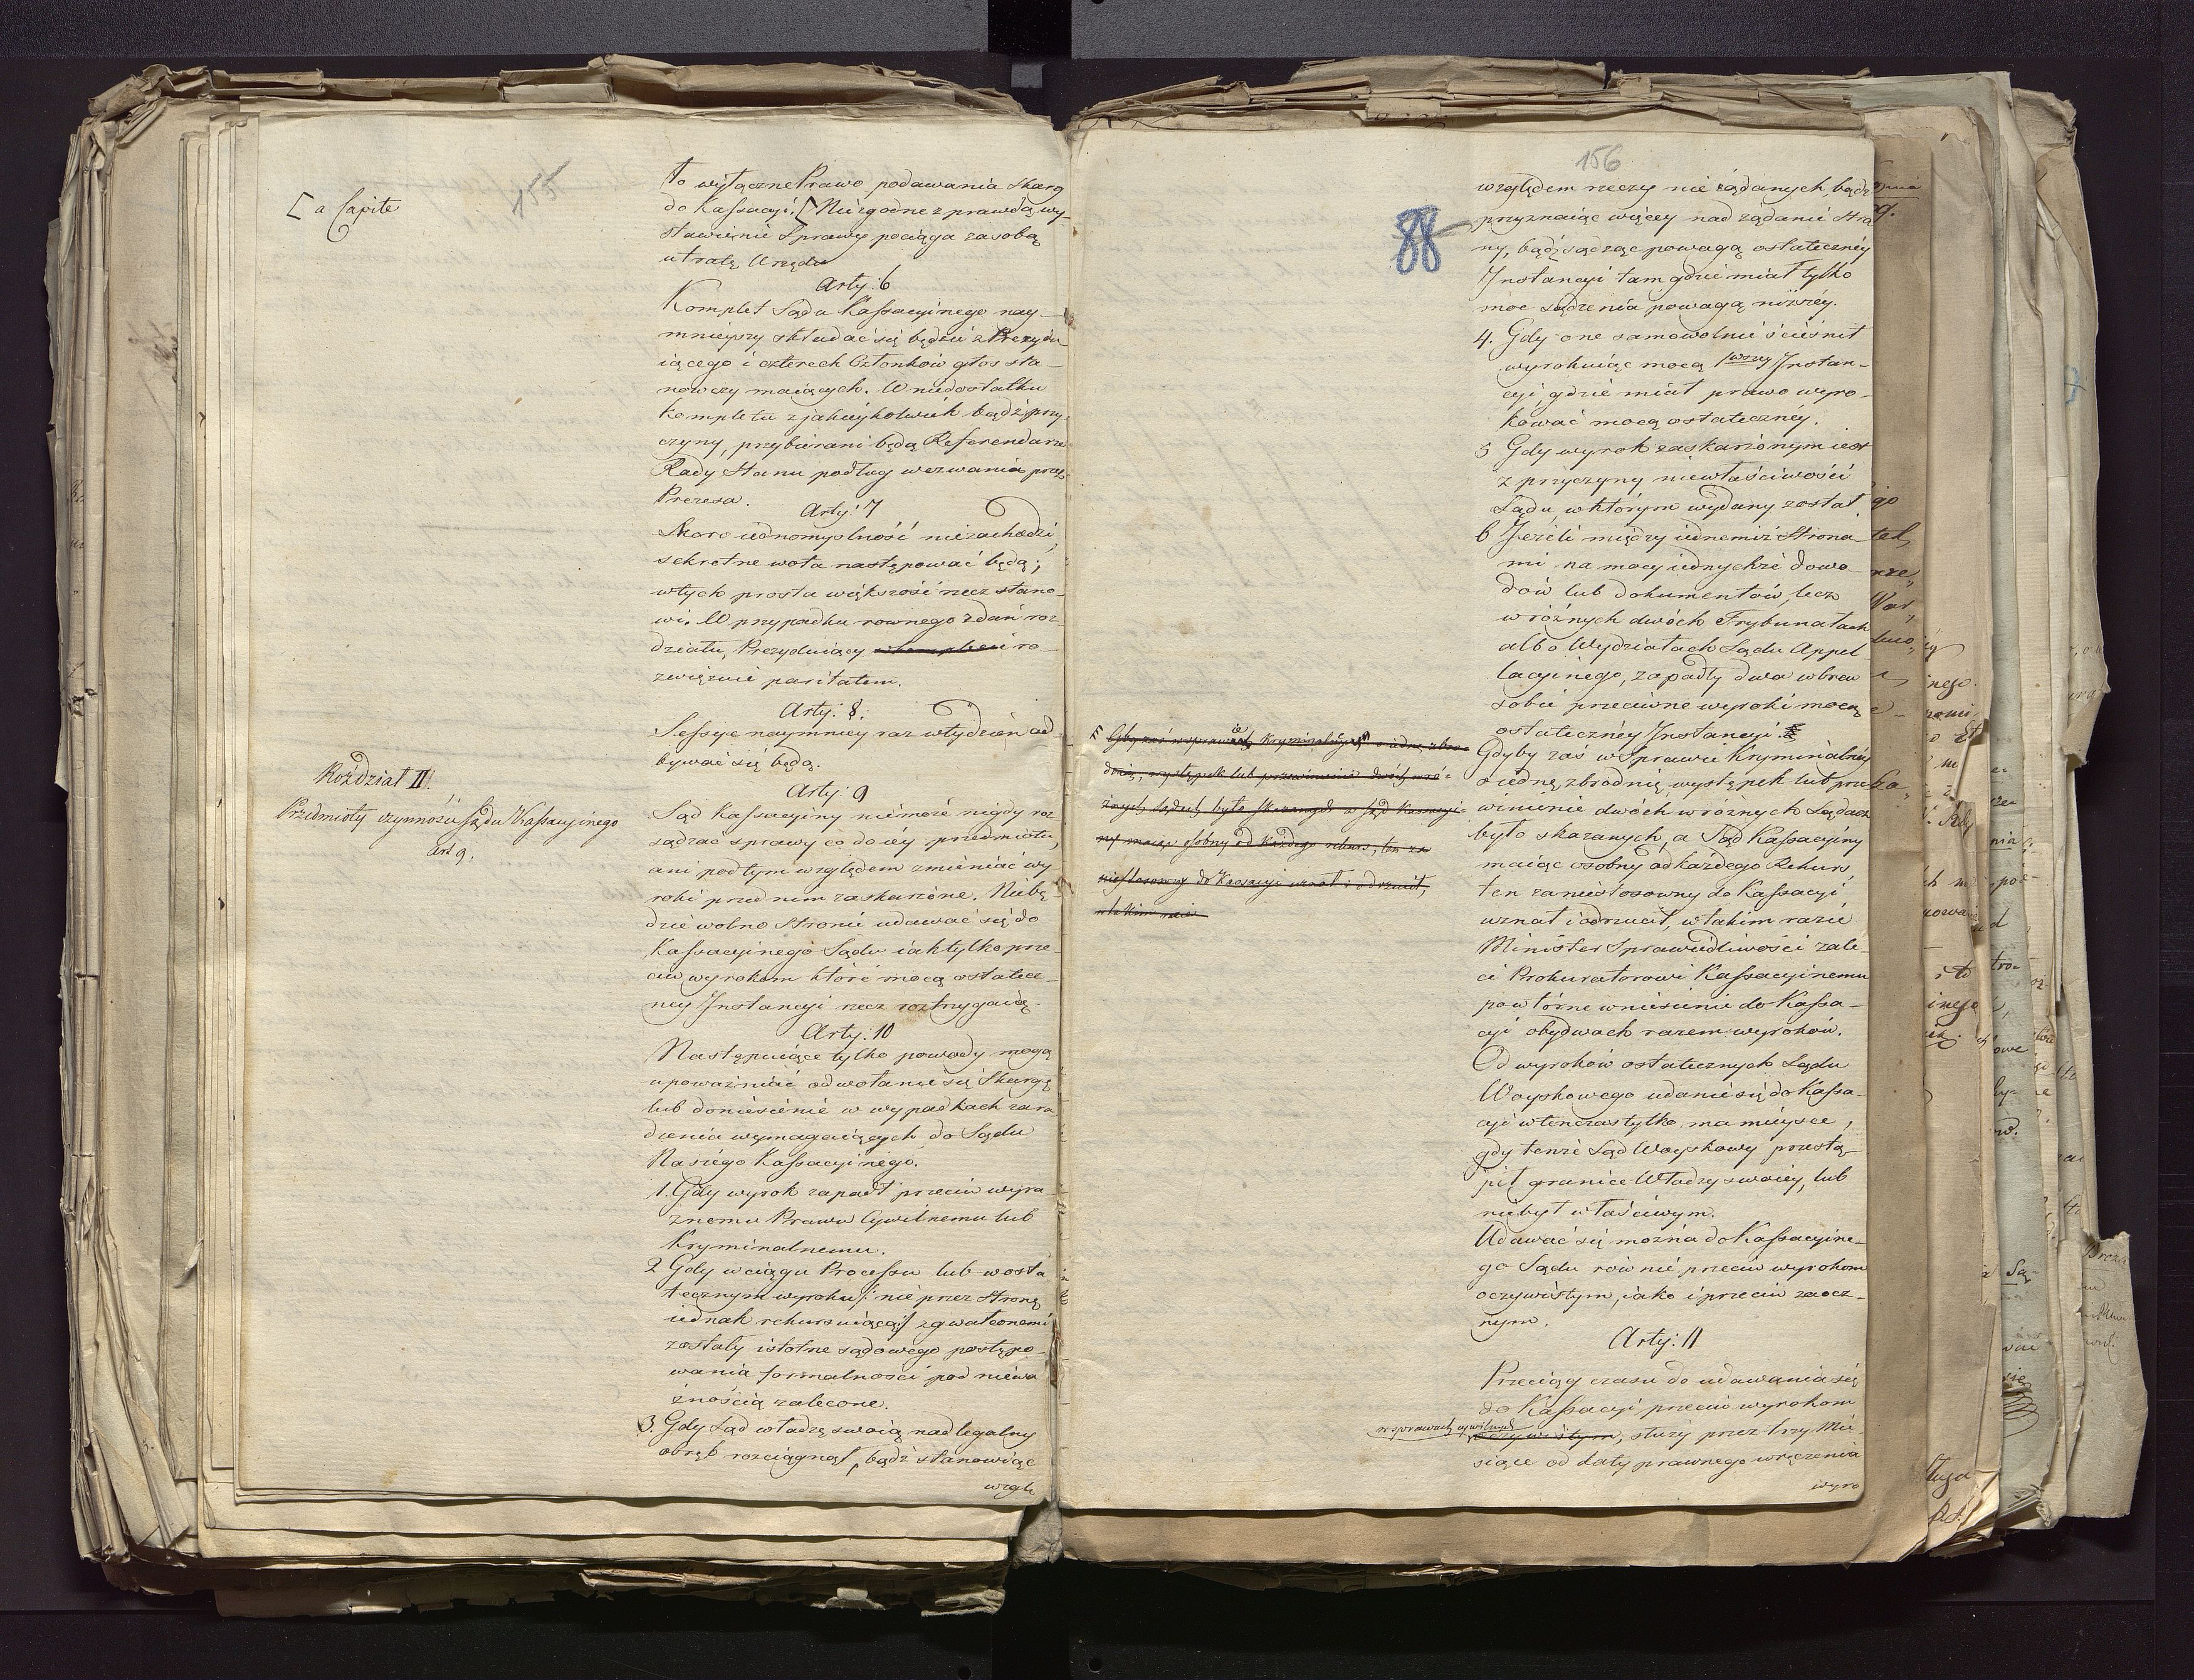 155
[ a Capite
to wyłączne Prawo podawania skarg
do Kassacyi. [ Niezgodne z prawdą wy-
stawienie Sprawy pociąga za sobą
utratę Urzędu
Arty: 6
Komplet Sądu Kassacyinego nay-
mnieyszy składać się będzie z Prezydu
iącego i czterech Członków głos sta-
nowczy maiących. W niedostatku
kompletu z jakieykolwiek bądź przy-
czyny, przybierani będą Referendarze
Rady Stanu podług wezwania przez
Prezesa.
Arty: 7
Skoro iednomyslność niezachodzi,
sekretne wota następować będą;
w tych prosta większość rzecz stano-
wi. W przypadku rownego zdań roz-
działu, Prezyduiący ro-
zwięzuie paritatem.
Arty: 8.
Sessye naymniey raz w tydzień od
bywać się będą.
Rozdział II.
Przedmioty czynności Sądu Kassacyinego
Art 9.
Arty: 9
Sąd Kassacyiny niemoże nigdy roz
sądzać sprawy co do iéy przedmiotu,
ani pod tym względem zmieniać wy
roki przed nim zaskarżone. Niebę-
dzie wolno Stronie udawać się do
Kassacyinego Sądu iak tylko prze-
ciw wyrokom które mocą ostatecz-
ney Instancyi rzecz roztrzygaią.
Arty: 10
Następuiące tylko powody mogą
upoważniać odwołanie się Skargę
lub doniesienie w wypadkach zara
dzenia wymagaiących do Sądu
Naszego Kassacyinego.
1. Gdy wyrok zapadł przeciw wyra
znemu Prawu Cywilnemu lub
Kryminalnemu.
2 Gdy w ciągu Processu lub w osta
tecznym wyroku /: nie przez Stronę
iednak rekursuiącą :/ zgwałconemi
zostały istotne sądowego postępo-
wania formalności pod niewa
żnością zalecone.
3. Gdy Sąd władzę swoią nad legalny
obręb rozciągnął, bądź stanowiąc
wzglę
156
88
względem rzeczy nie żądanych bądź
przyznaiąc więcey nad żądanie Stro
ny, bądź sądząc powagą ostateczney
Instancyi tam gdzie miał tylko
moc sądzenia powagą niższéy.
4. Gdy one samowolnie ścieśnił
wyrokuiąc mocą 1wszey Instan-
cyi, gdzie miał prawo wyro-
kować mocą ostatecznéy.
5 Gdy wyrok zaskarżonym iest
z przyczyny niewłaściwości
Sądu, w którym wydany został.
6 Jeżeli między iednemiż Strona-
mi na mocy iednychże dowo-
dów lub dokumentów, lecz
w różnych dwóch Trybunałach
albo Wydziałach Sądu Appel-
lacyinego, zapadły dwa wbrew
sobie przeciwne wyroki mocą
ostateczney Instancyi.
Gdyby zaś w sprawie Kryminalnéy o iednę zbro-
dnię, występek lub przewinienie dwóch w ró-
żnych Sądach było skazanych a Sąd Kassacyi-
ny maiąc osobny od każdego rekurs, ten za
niestosowny do Kassacyi uznał i odrzucił,
w takim razie
Gdyby zaś w Sprawie Kryminalnéy
o iednę zbrodnię, występek lub prze
winienie dwóch w różnych Sądach
było skazanych, a Sąd Kassacyiny
maiąc osobny od każdego Rekurs,
ten za niestosowny do Kassacyi
uznał i odrzucił, w takim razie
Minister Sprawiedliwości zale-
ci Prokuratorowi Kassacyinemu
powtórne wniesienie do Kassa-
cyi obydwoch razem wyroków.
Od wyroków ostatecznych Sądu
Woyskowego udanie się do Kassa-
cyi wtenczas tylko ma mieysce,
gdy tenże Sąd Woyskowy przestą-
pił granice Władzy swoiey, lub
niebył właściwym.
Udawać się można do Kassacyine-
go Sądu równie przeciw wyrokom
oczywistym, iako i przeciw zaocz-
nym.
Arty: 11
Przeciąg czasu do udawania się
do Kassacyi przeciw wyrokom
w sprawach cywilnych
oczywistym, służy przez trzy Mie-
siące od daty prawnego wręczenia
wyro